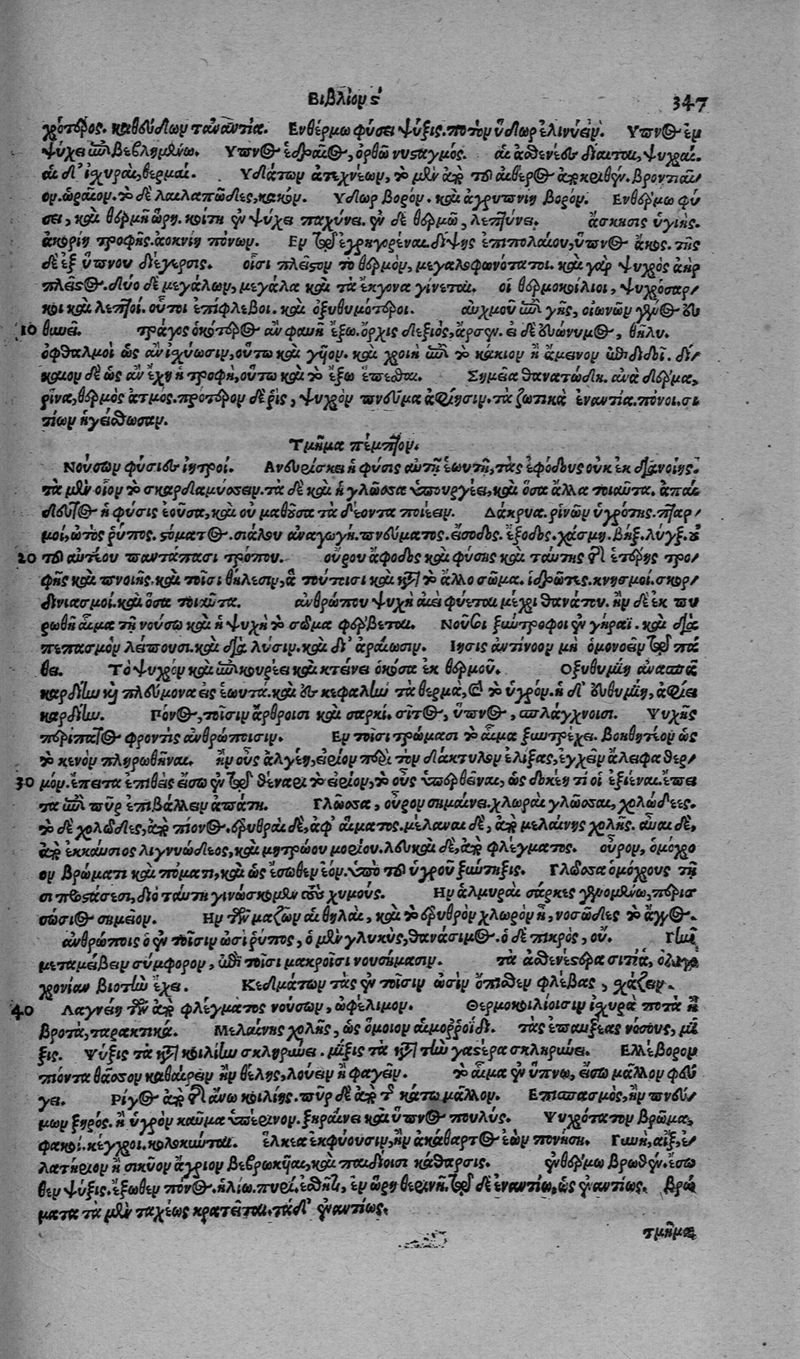 Βιβλίον ϛ 347
χρότερος. καθεύδων τἀναντία. Ἐν θερμῷ φύσει ψύξις. ποτὸν ὕδωρ ἐλινύειν. Ὕπνος ἐν
ψύχει ἐπιβεβλημένῳ. Ὕπνος ἑδραῖος, ὀρθῷ νυσταγμός. αἱ ἀσθενεῖς δίαιται, ψυχραί.
αἱ δ' ἰσχυραί, θερμαί. Ὑδάτων ἀτεχνέων, τὸ μὲν ἀπὸ τοῦ αἰθέρος ἀποκριθὲν. βρονταῖ
ον. ὡραῖον. τὸ δὲ λαιλαπῶδες, κακόν. Ὕδωρ βορόν. καὶ ἀγρυπνίη βορόν. Ἐν θερμῷ φύ
σει, καὶ θερμῇ ὥρῃ. κοίτη ἐν ψύχει παχύνει. ἐν δὲ θερμῷ, λεπτύνει. ἄσκησις ὑγιής.
ἀκορίη τροφῆς. ἀοκνίη πόνων. Ἐν τῷ ἐγρηγορέναι. δίψης ἐπιπολαίου, ὕπνος ἄκος. τῆς
δὲ ἐξ ὕπνου διέγερσις. οἷσι πλεῖστον τὸ θερμόν, μεγαλοφωνότατοι. καὶ γὰρ ψυχρὸς ἀὴρ
πλεῖστος. δύο δὲ μεγάλων, μεγάλα καὶ τὰ ἔκγονα γίνεται. οἱ θερμοκοίλιοι, ψυχρόσαρ-
κοι καὶ λεπτοί. οὗτοι ἐπίφλεβοι. καὶ ὀξυθυμότεροι. αὐχμοῦ ἐπὶ γῆς, οἰωνῶν γένος εὐ
10 θηνεῖ. τράγος ὁκότερος ἂν φανῇ ἔξω. ὄρχις δεξιός, ἄρσεν. εἰ δὲ εὐώνυμος, θῆλυ.
ὀφθαλμοὶ ὡς ἂν ἰσχύωσιν, οὕτω καὶ γυῖον. καὶ χροιὴ ἐπὶ τὸ κάκιον ἢ ἄμεινον ἐπιδιδοῖ. δί-
καιον δὲ ὡς ἂν ἔχῃ ἡ τροφή, οὕτω καὶ τὸ ἔξω ἕπεσθαι. Σημεῖα θανατώδη. ἀνὰ δέρμα,
ῥῖνα, θερμὸς ἀτμός. πρότερον δὲ ῥίς, ψυχρὸν πνεῦμα ἀφίησιν. τὰ ζωτικὰ ἐναντία. πόνοι. σι
τίων ἡγείσθωσαν.
Τμῆμα πέμπτον.
Νούσων φύσιες ἰητροί. Ἀνευρίσκει ἡ φύσις αὐτὴ ἑωυτῇ, τὰς ἐφόδους οὐκ ἐκ διανοίης.
τὰ μὲν οἷον τὸ σκαρδαμύσσειν. τὰ δὲ καὶ ἡ γλῶσσα ὑπουργέει, καὶ ὅσα ἄλλα τοιαῦτα. ἀπαί
δευτος ἡ φύσις ἐοῦσα, καὶ οὐ μαθοῦσα τὰ δέοντα ποιέειν. Δάκρυα. ῥινῶν ὑγρότης. πταρ-
μοί, ὠτὸς ῥύπος. στόματος. σιάλου ἀναγωγή. πνεύματος. ἔσοδος. ἔξοδος. χάσμη. βήξ. λύγξ. οὐ
20 τοῦ αὐτέου παντάπασι τρόπου. οὔρου ἄφοδος καὶ φύσης καὶ ταύτης τῆς ἑτέρης τρο-
φῆς καὶ πνοιῆς. καὶ τοῖσι θήλεσιν, ἃ τούτεισι καὶ κατὰ τὸ ἄλλο σῶμα. ἱδρῶτες. κνησμοί. σκορ-
δινιασμοί. καὶ ὅσα τοιαῦτα. ἀνθρώπου ψυχὴ αἰεὶ φύεται μέχρι θανάτου. ἢν δὲ ἐκ πυ
ρωθῇ ἅμα τῇ νούσῳ καὶ ἡ ψυχὴ τὸ σῶμα φέρβεται. Νοῦσοι ξύντροφοι ἐν γήραϊ. καὶ διὰ
πεπασμὸν λείπουσι. καὶ διὰ λύσιν. καὶ δι' ἀραίωσιν. Ἴησις ἀντίνοον μὴ ὁμονοεῖν τῷ πά
θει. Τὸ ψυχρὸν καὶ ἐπικουρέει καὶ κτείνει ὁκόσα ἐκ θερμοῦ. Ὀξυθυμίη ἀνασπᾷ
καρδίην καὶ πλεύμονα εἰς ἑωυτά. καὶ ἐς κεφαλὴν τὰ θερμά, καὶ τὸ ὑγρόν. ἡ δ' εὐθυμίη, ἀφίει
καρδίην. Πόνος, τοῖσιν ἄρθροισι καὶ σαρκί. σῖτος, ὕπνος, σπλάγχνοισι. Ψυχῆς
περίπατος φροντὶς ἀνθρώποισιν. Ἐν τοῖσι τρώμασι τὸ αἷμα ξυντρέχει. βοηθητέον ὡς
τὸ κενὸν πληρωθῆναι. ἢν οὖς ἀλγέῃ, εἴριον περὶ τὸν δάκτυλον ἑλίξας, ἐγχεῖν ἄλειφα θερ-
30 μόν. ἔπειτα ἐπιθεὶς ἔσω ἐν τῷ θέναρι τὸ εἴριον, τὸ οὖς ὑπερθεῖναι, ὡς δοκέῃ τί οἱ ἐξιέναι. ἔπει
τα ἐπὶ πῦρ ἐπιβάλλειν ἀπάτη. Γλῶσσα, οὖρον σημαίνει. χλωραὶ γλῶσσαι, χολώδεες.
τὸ δὲ χολῶδες, ἀπὸ πίονος. ἐρυθραὶ δέ, ἀφ' αἵματος. μέλαιναι δέ, ἀπὸ μελαίνης χολῆς. αὖαι δέ,
ἀπὸ ἐκκαύσιος λιγνυώδεος, καὶ μητρώου μορίου. λευκαὶ δέ, ἀπὸ φλέγματος. οὖρον, ὁμόχρο
ον βρώματι καὶ πόματι, καὶ ὡς ἔσωθεν ἐόν. ὑπὸ τοῦ ὑγροῦ ξύντηξις. Γλῶσσα ὁμόχρους τῇ
σι προστάσεσι, διὸ ταύτῃ γινώσκομεν τοὺς χυμούς. Ἢν ἁλμυραὶ σάρκες γευομένῳ, περισ
σώσιος σημεῖον. Ἢν τῶν μαζῶν αἱ θηλαί, καὶ τὸ ἐρυθρὸν χλωρὸν ᾖ, νοσῶδες τὸ ἄγγος.
ἀνθρώποις ὁ ἐν τοῖσιν ὠσὶ ῥύπος, ὁ μὲν γλυκύς, θανάσιμος. ὁ δὲ πικρός, οὔ. Γῆν
μεταμείβειν σύμφορον, ἐπὶ τοῖσι μακροῖσι νουσήμασιν. τὰ ἀσθενέστερα σιτία, ὀλιγο
χρονίην βιοτὴν ἔχει. Κεδμάτων τὰς ἐν τοῖσιν ὠσὶν ὄπισθεν φλέβας, σχάζειν.
40 Λαγνείη τῶν ἀπὸ φλέγματος νούσων, ὠφέλιμον. Θερμοκοιλίοισιν ἰσχυρὰ ποτὰ ἢ
βρωτά, ταρακτικά. Μελαίνης χολῆς, ὡς ὅμοιον αἱμορροΐδι. τὰς ἐπαυξέας νόσους, μῖ
ξις. Ψύξις τὰ κατὰ κοιλίην σκληρύνει. μῖξις τὰ κατὰ τὴν γαστέρα σκληρύνει. Ἑλλέβορον
πιόντα θᾶσσον καθαίρειν ἢν θέλῃς, λούειν ἢ φαγεῖν. τὸ αἷμα ἐν ὕπνῳ, εἴσω μᾶλλον φεύ
γει. Ῥῖγος ἀπὸ τῆς ἄνω κοιλίης. πῦρ δὲ ἀπὸ τῆς κάτω μᾶλλον. Ἐπισπασμός, ἢν πνεύ-
μων ξηρός. ἢ ὑγρὸν καῦμα ὑπέρινον. ξηραίνει καὶ ὕπνος πουλύς. Ψυχρότατον βρῶμα,
φακοί. κέγχροι. κολοκύνται. ἕλκεα ἐκφύουσιν, ἢν ἀκάθαρτος ἐὼν πονήσῃ. Γυνή, αἴξ, ἐ-
λατήριον ἢ σίκυον ἄγριον βεβρωκυῖαι, καὶ παιδίοισι κάθαρσις. ἐν θερμῷ βρωθέν. ἔσω
θεν ψύξις. ἔξωθεν πόνος. ἡλίῳ. πυρί. ἐσθῆτι, ἐν ὥρῃ θερινῇ. τῷ δὲ ἐναντίῳ, ὡς ἐναντίως. βρώ
ματα τὰ μὲν ταχέως κρατεῖται. τὰ δ' ἐναντίως.
τμῆμα